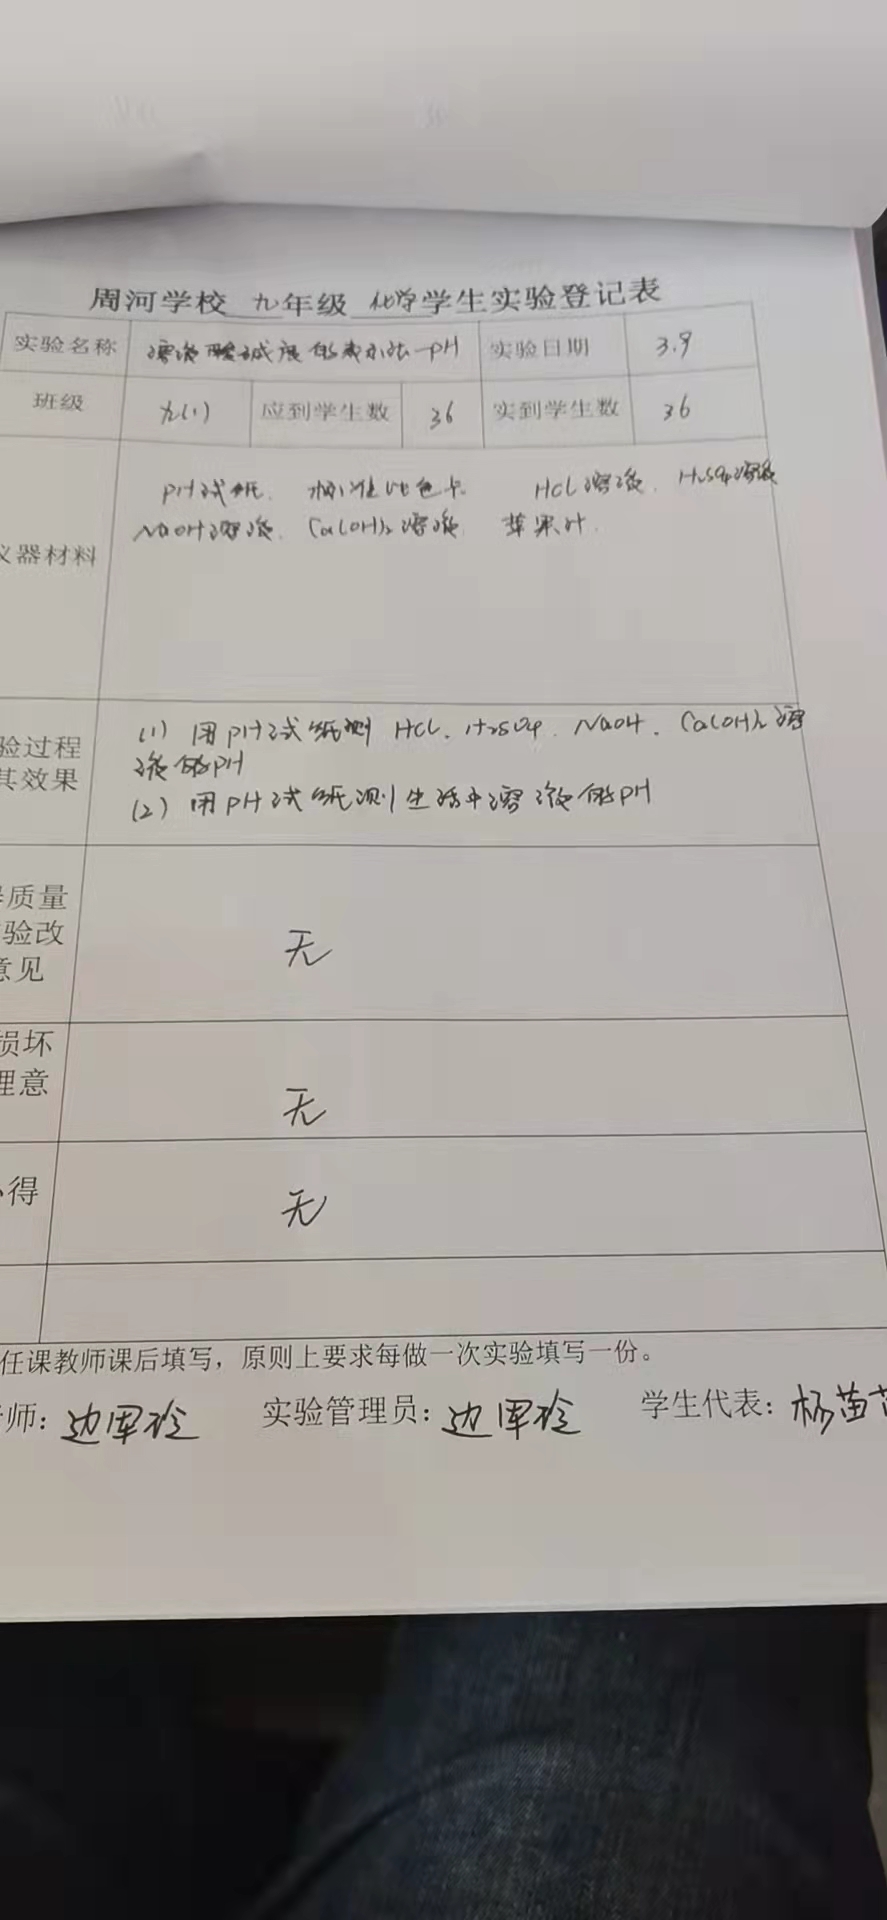 周河学校 九年级 化学学生实验登记表
实验名称 溶液酸碱度的表示法—PH 实验日期 3.9
班级 九(1) 应到学生数 36 实到学生数 36
PH试纸. 标准比色卡. HCl溶液. H₂SO₄溶液
仪器材料 NaOH溶液. Ca(OH)₂溶液. 苹果汁.
(1) 用PH试纸测 HCl. H₂SO₄. NaOH. Ca(OH)₂溶
验过程 液的PH
其效果 (2) 用PH试纸测生活中溶液的PH
质量
验改 无
意见
损坏
理意 无
得 无
任课教师课后填写，原则上要求每做一次实验填写一份。
师：边军玲 实验管理员：边军玲 学生代表：杨苗